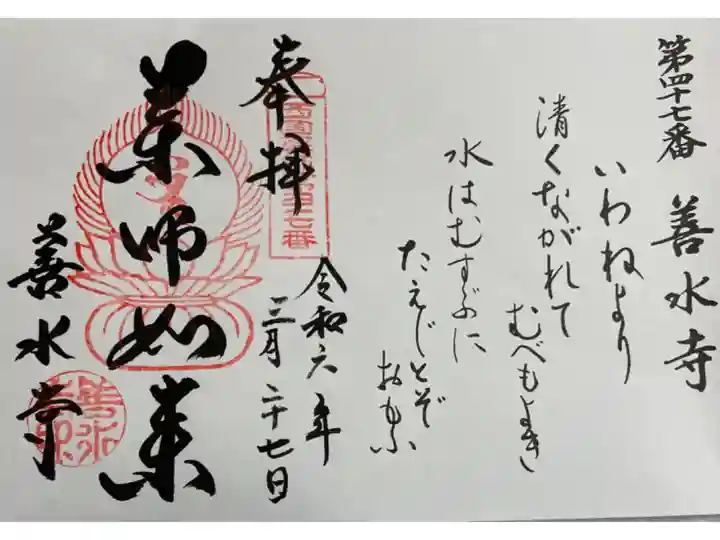 第四十七番 善水寺
いわねより
清くながれて
むべもよき
水はむすぶに
たえじとぞ
おもふ
奉拝
令和六年
三月二十七日
薬師如来
善水寺